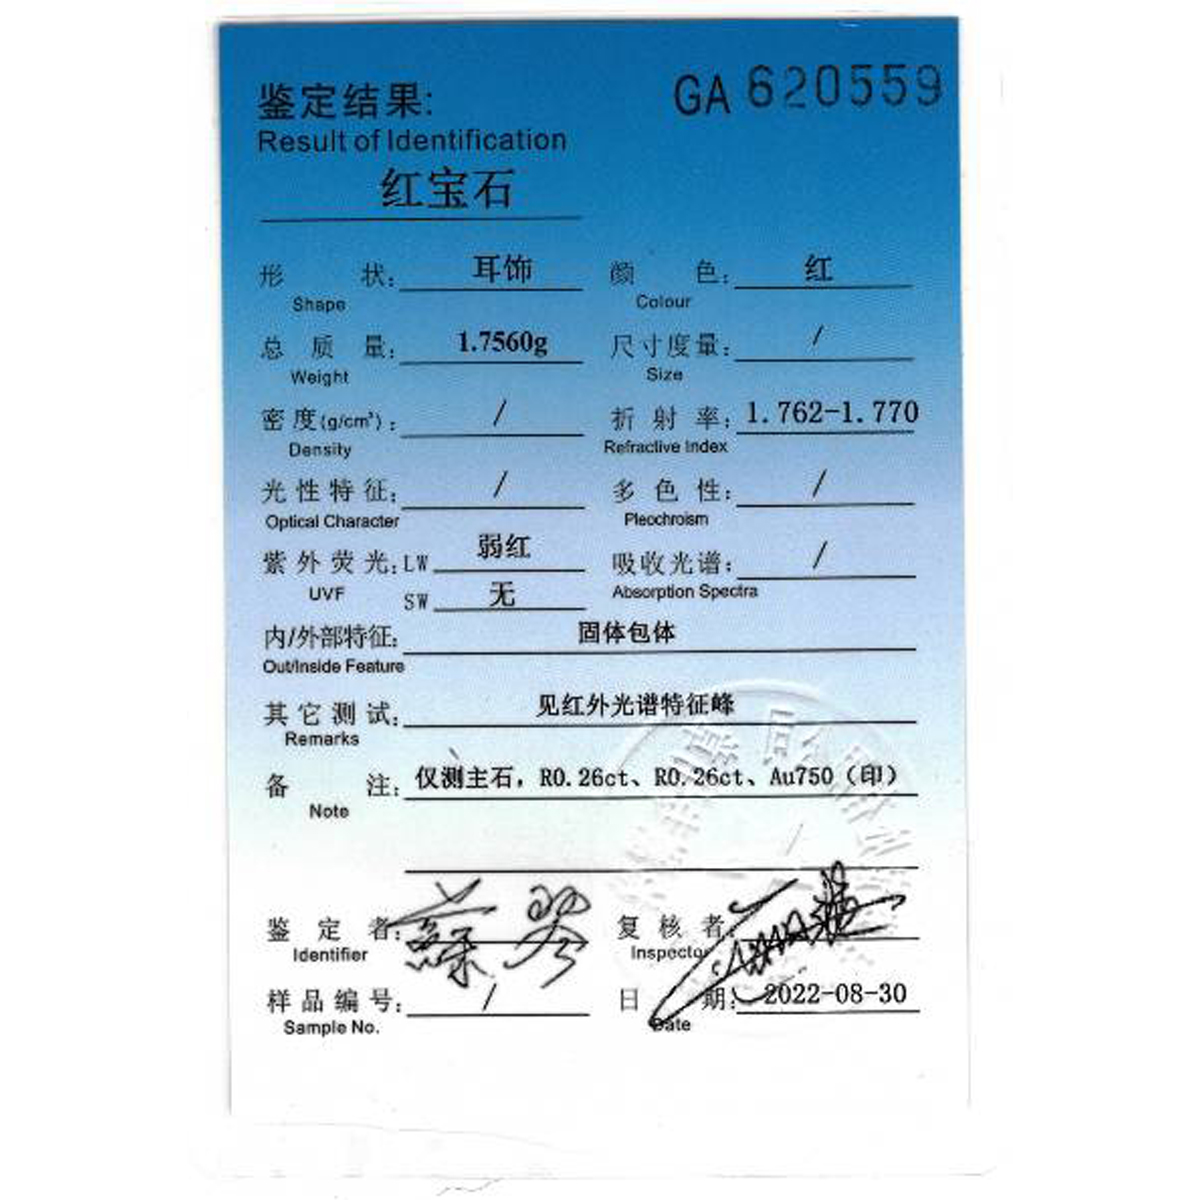 鉴定结果:
GA 620559
Result of Identification
红宝石
形状: 耳饰 颜色: 红
Shape Colour
总质量: 1.7560g 尺寸度量: /
Weight Size
密度(g/cm³): / 折射率: 1.762-1.770
Density Refractive Index
光性特征: / 多色性: /
Optical Character Pleochroism
紫外荧光: LW 弱红 吸收光谱: /
UVF SW 无 Absorption Spectra
内/外部特征: 固体包体
Out/Inside Feature
其它测试: 见红外光谱特征峰
Remarks
备注: 仅测主石, R0.26ct、R0.26ct、Au750（印）
Note
鉴定者: 复核者:
Identifier Inspector
样品编号: / 日期: 2022-08-30
Sample No. Date